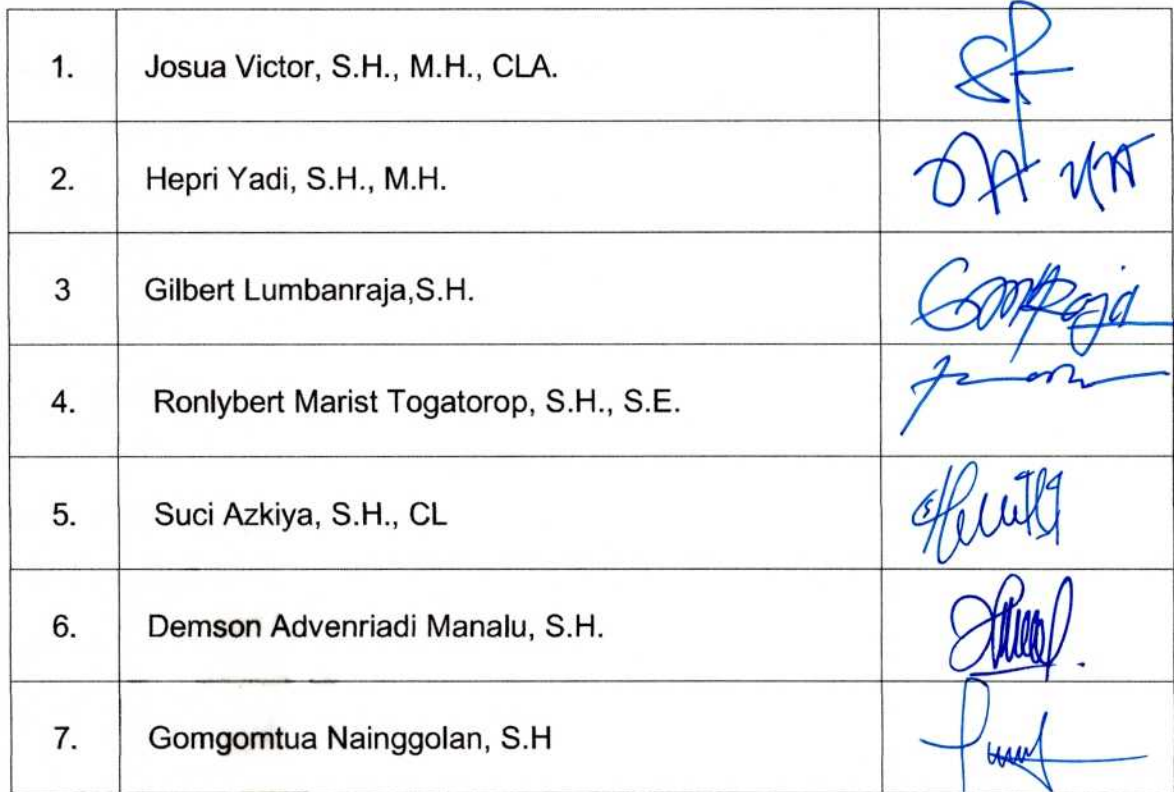 1. Josua Victor, S.H., M.H., CLA.
2. Hepri Yadi, S.H., M.H.
3 Gilbert Lumbanraja,S.H.
4. Ronlybert Marist Togatorop, S.H., S.E.
5. Suci Azkiya, S.H., CL
6. Demson Advenriadi Manalu, S.H.
7. Gomgomtua Nainggolan, S.H